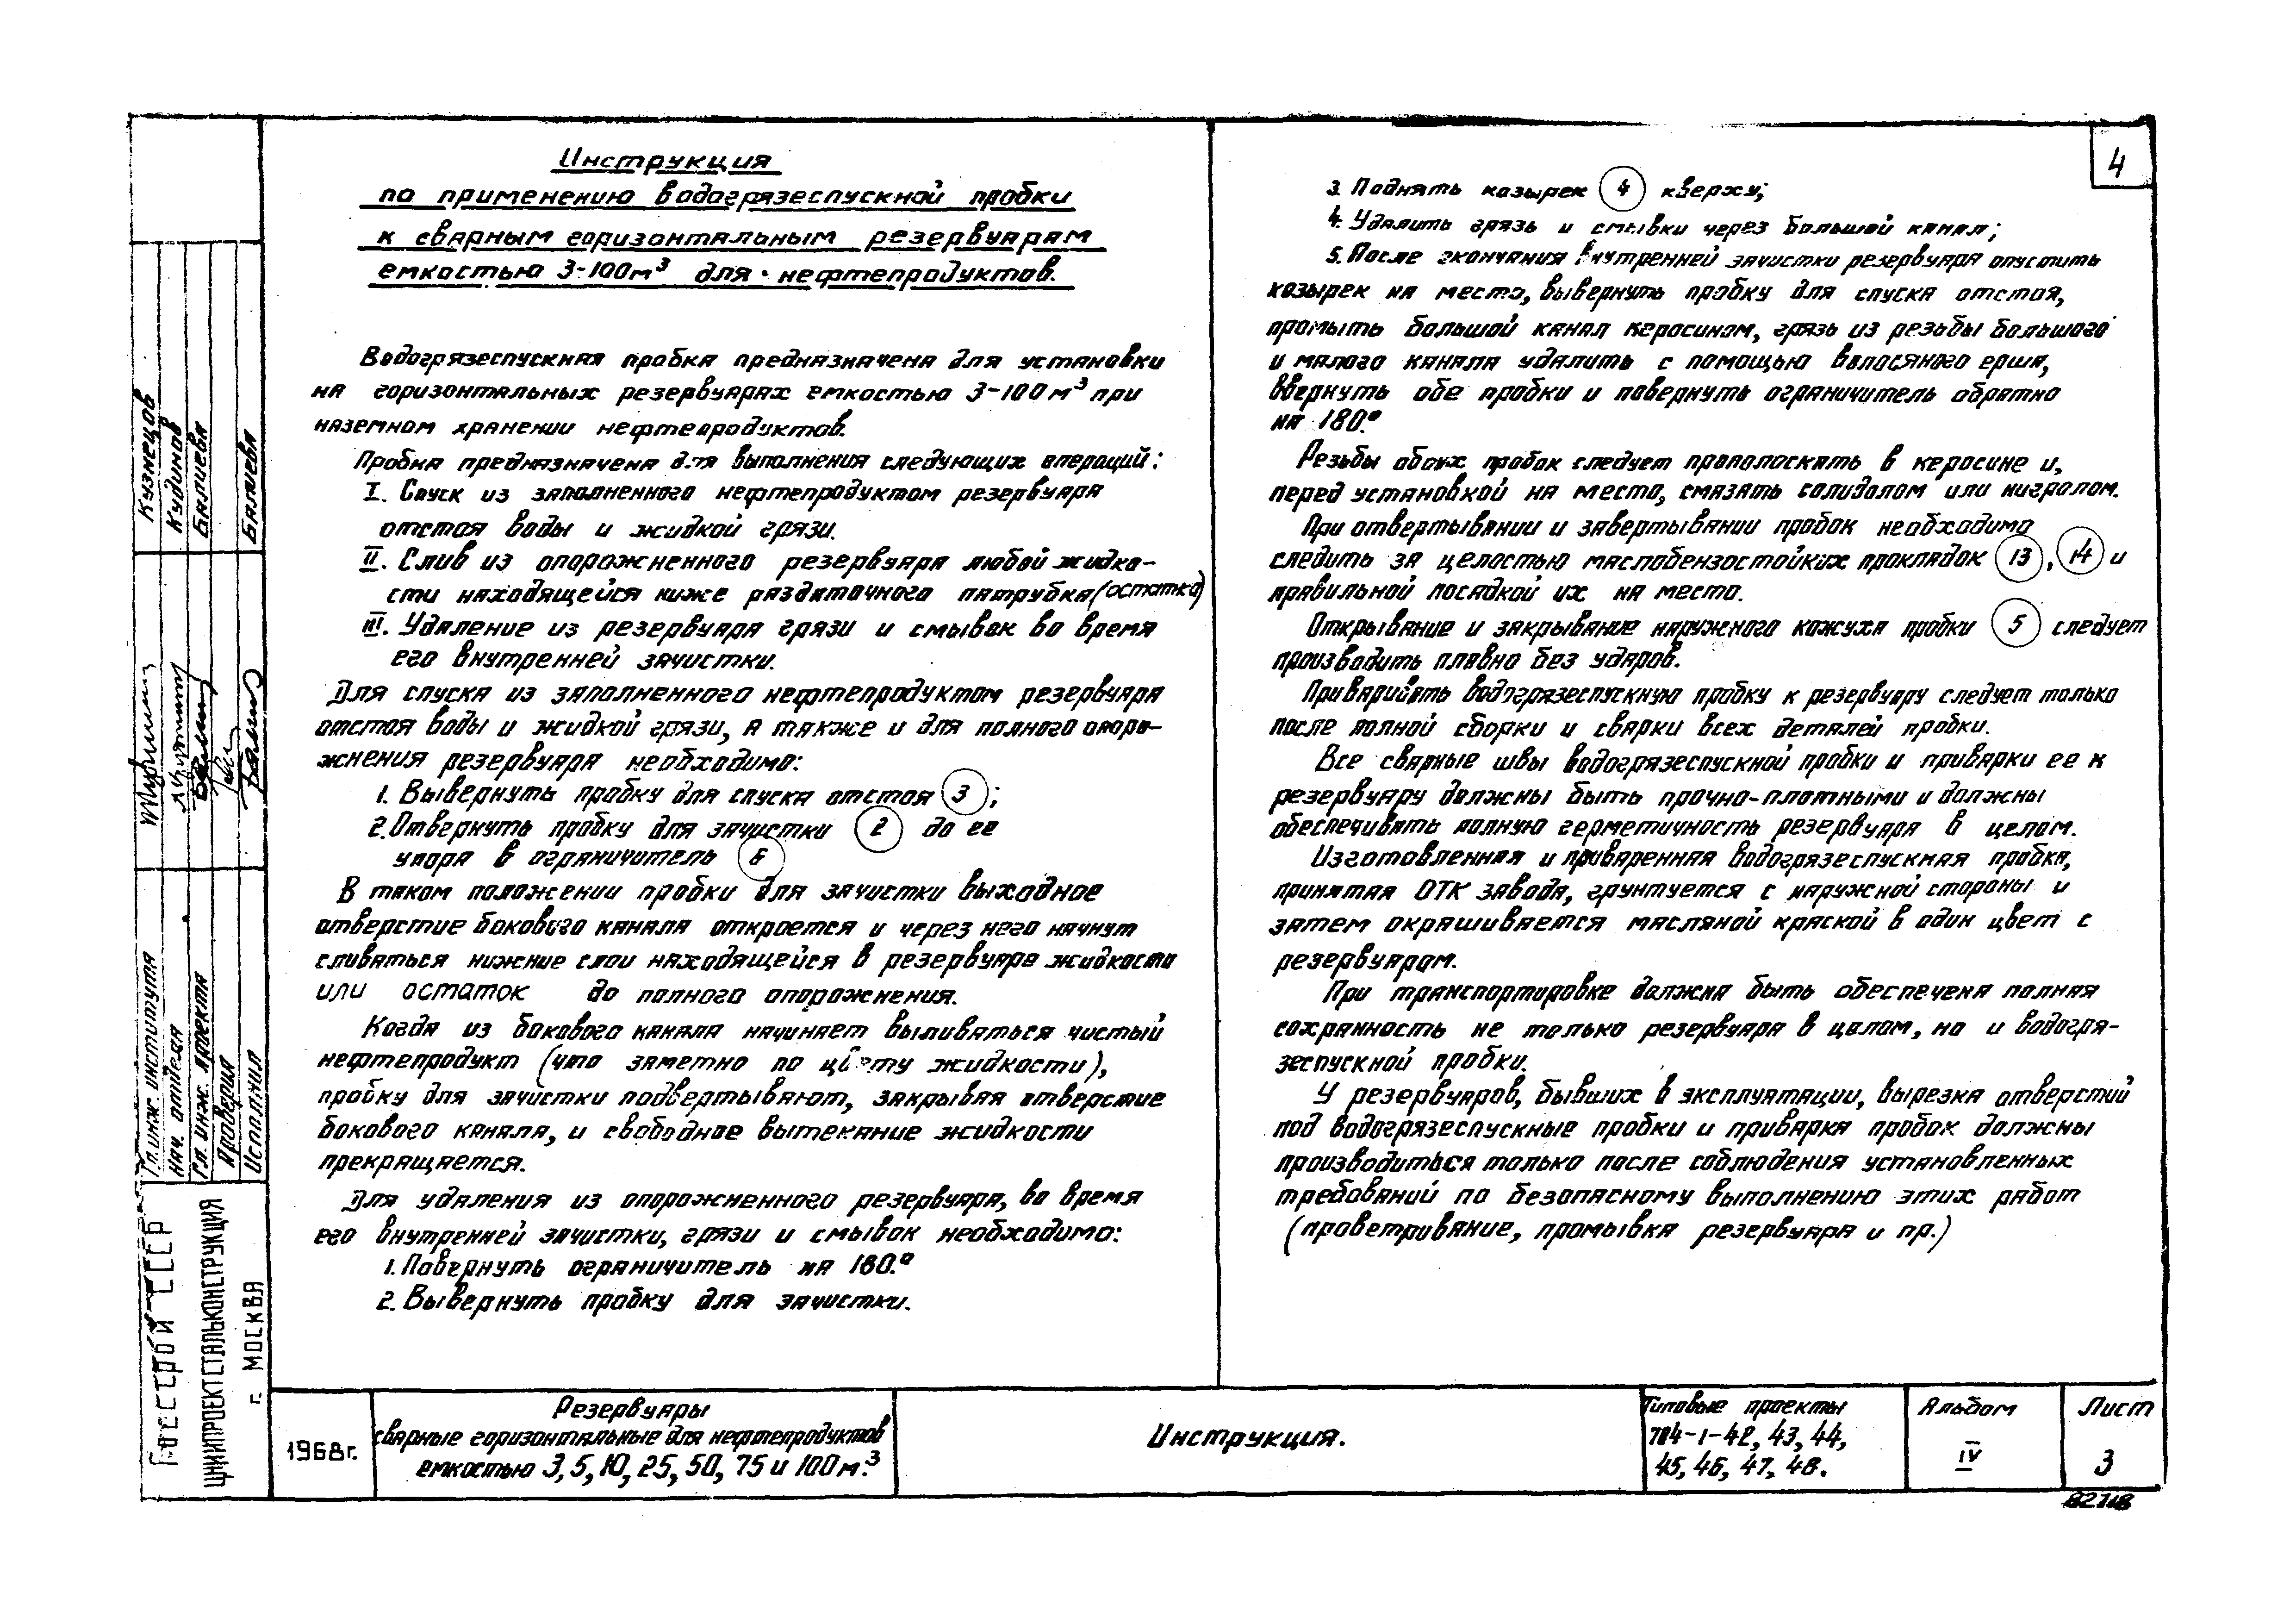 Инструкция
по применению водогрязеспускной пробки
к сварным горизонтальным резервуарам
емкостью 3-100м³ для нефтепродуктов.
Водогрязеспускная пробка предназначена для установки
на горизонтальных резервуарах емкостью 3-100м³ при
наземном хранении нефтепродуктов.
Пробка предназначена для выполнения следующих операций:
I. Спуск из заполненного нефтепродуктом резервуара
отстоя воды и жидкой грязи.
II. Слив из опорожненного резервуара любой жидко-
сти находящейся ниже раздаточного патрубка (остатка)
III. Удаление из резервуара грязи и смывок во время
его внутренней зачистки.
Для спуска из заполненного нефтепродуктом резервуара
отстоя воды и жидкой грязи, а также и для полного опоро-
жнения резервуара необходимо:
1. Вывернуть пробку для спуска отстоя 3;
2. Отвернуть пробку для зачистки 2 до ее
упора в ограничитель 6
В таком положении пробки для зачистки выходное
отверстие бокового канала откроется и через него начнут
сливаться нижние слои находящейся в резервуаре жидкости
или остаток до полного опорожнения.
Когда из бокового канала начинает выливаться чистый
нефтепродукт (что заметно по цвету жидкости),
пробку для зачистки подвертывают, закрывая отверстие
бокового канала, и свободное вытекание жидкости
прекращается.
Для удаления из опорожненного резервуара, во время
его внутренней зачистки, грязи и смывок необходимо:
1. Повернуть ограничитель на 180.°
2. Вывернуть пробку для зачистки.
4
3. Поднять козырек 4 кверху;
4. Удалить грязь и смывки через большой канал;
5. После окончания внутренней зачистки резервуара опустить
козырек на место, вывернуть пробку для спуска отстоя,
промыть большой канал керосином, грязь из резьбы большого
и малого канала удалить с помощью волосяного ерша,
ввернуть обе пробки и повернуть ограничитель обратно
на 180.°
Резьбы обоих пробок следует прополоскать в керосине и,
перед установкой на место, смазать солидолом или нигролом.
При отвертывании и завертывании пробок необходимо
следить за целостью маслобензостойких прокладок 13, 14 и
правильной посадкой их на место.
Открывание и закрывание наружного кожуха пробки 5 следует
производить плавно без ударов.
Приваривать водогрязеспускную пробку к резервуару следует только
после полной сборки и сварки всех деталей пробки.
Все сварные швы водогрязеспускной пробки и приварки ее к
резервуару должны быть прочно-плотными и должны
обеспечивать полную герметичность резервуара в целом.
Изготовленная и приваренная водогрязеспускная пробка,
принятая ОТК завода, грунтуется с наружной стороны и
затем окрашивается масляной краской в один цвет с
резервуаром.
При транспортировке должна быть обеспечена полная
сохранность не только резервуара в целом, но и водогря-
зеспускной пробки.
У резервуаров, бывших в эксплуатации, вырезка отверстий
под водогрязеспускные пробки и приварка пробок должны
производиться только после соблюдения установленных
требований по безопасному выполнению этих работ
(проветривание, промывка резервуара и пр.)
Кузнецов
Кудинов
Балиева
Балиева
Гл. инж. института
Нач. отдела
Гл. инж. проекта
Проверил
Исполнил
Госстрой СССР
ЦНИИПРОЕКТСТАЛЬКОНСТРУКЦИЯ
г. МОСКВА
1968г.
Резервуары
сварные горизонтальные для нефтепродуктов
емкостью 3, 5, 10, 25, 50, 75 и 100м.³
Инструкция.
Типовые проекты
704-1-42, 43, 44,
45, 46, 47, 48.
Альбом
IV
Лист
3